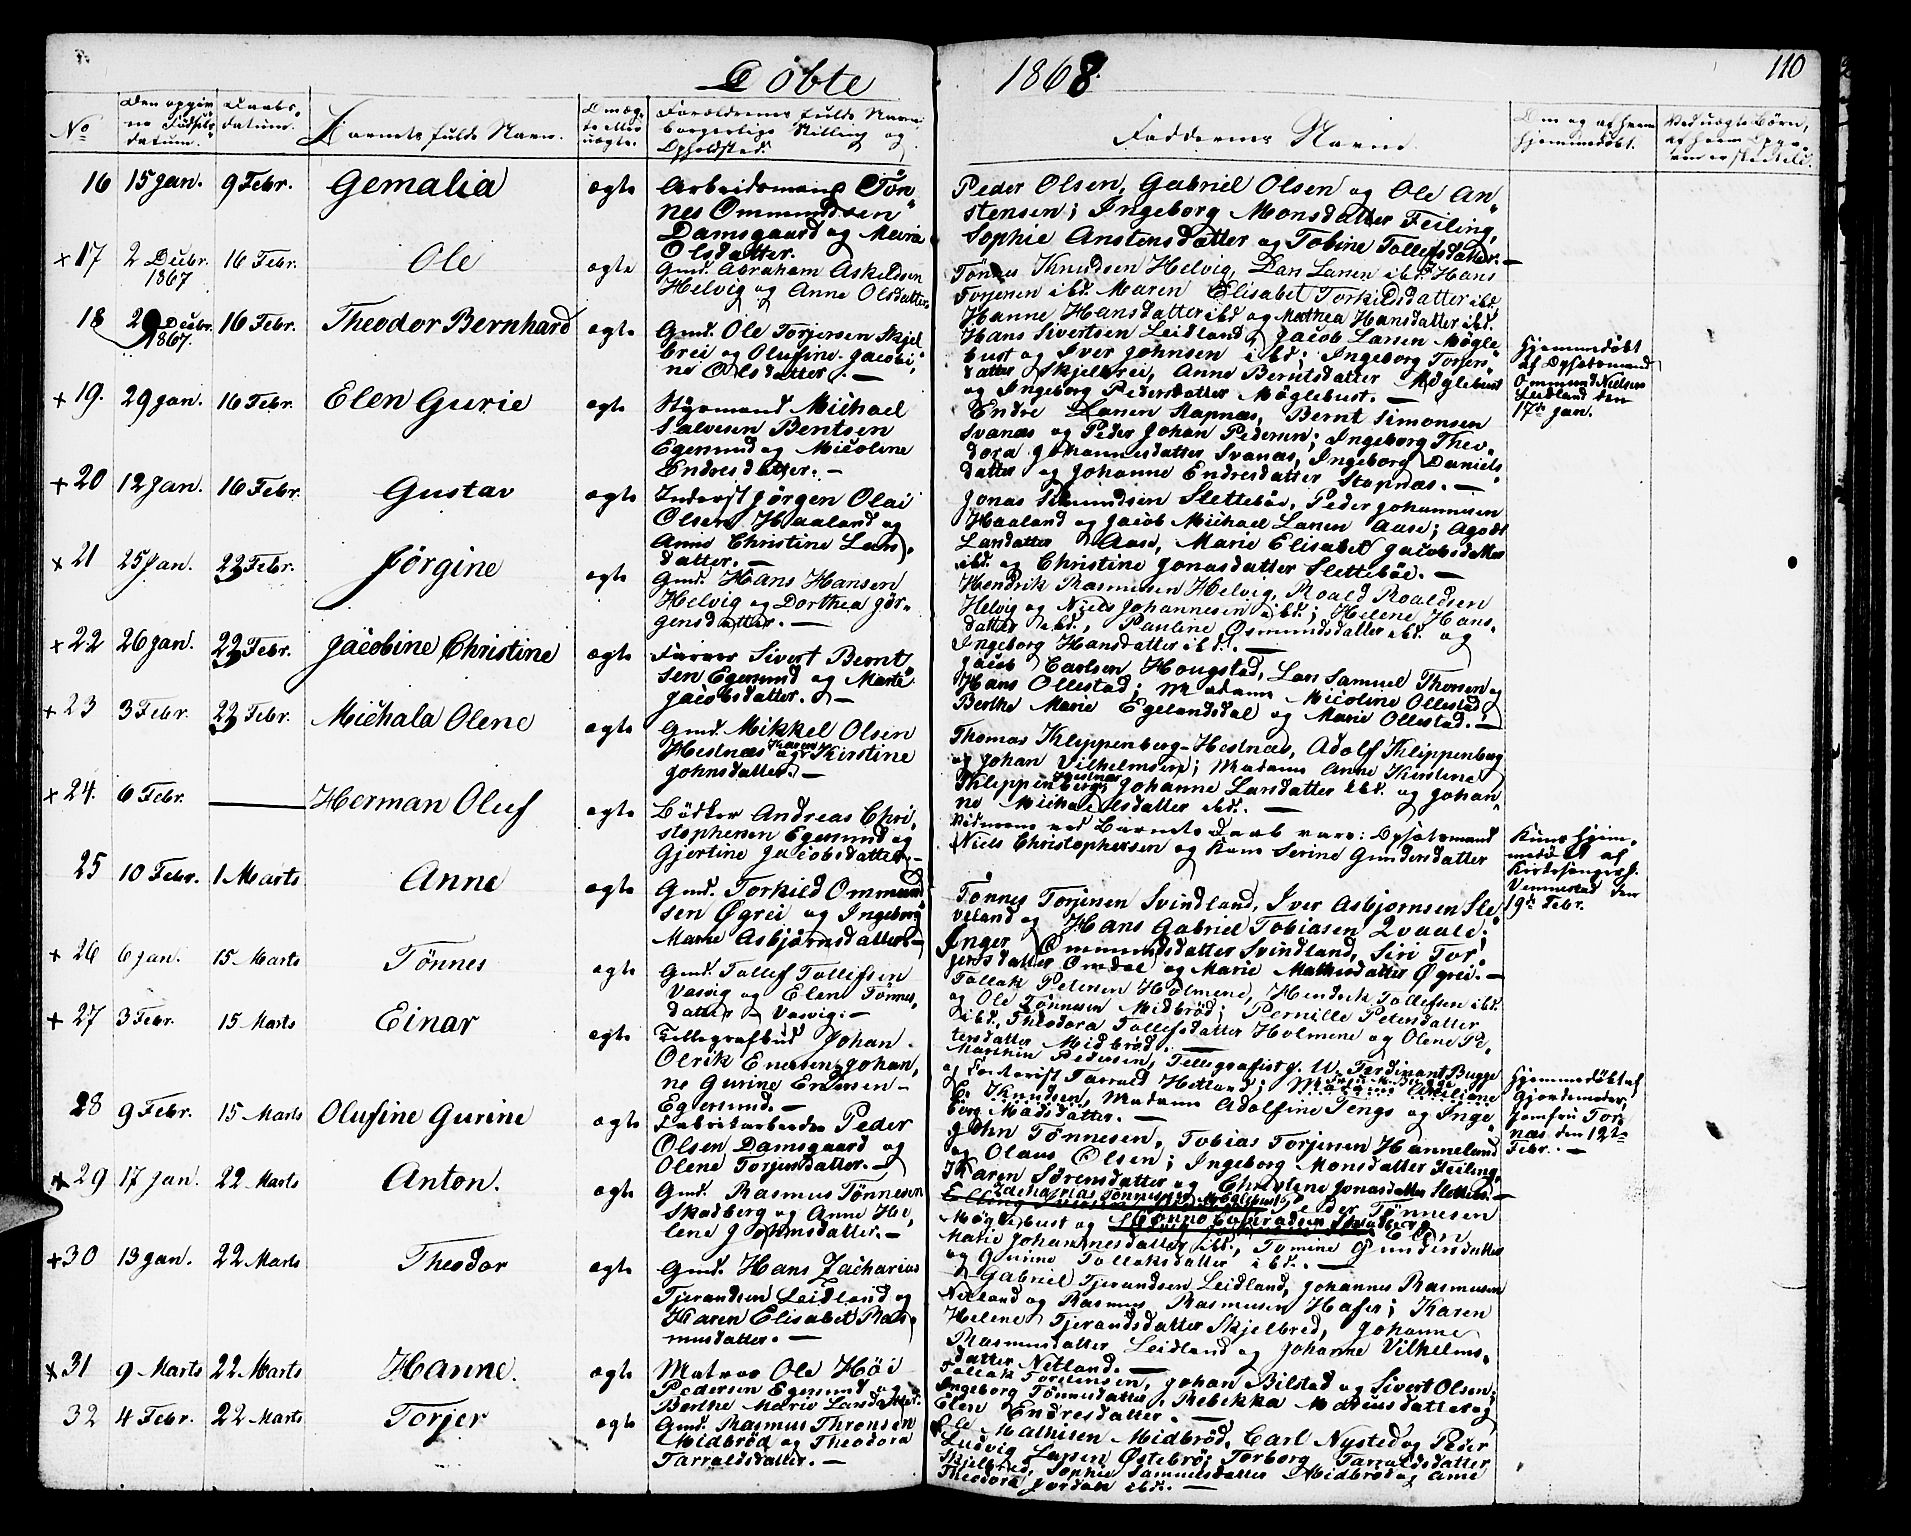 Døbte 1868. 110
No
Den opgiv-
ne Fødsels-
datum.
Daabs-
datum.
Barnets fulde Navn.
Om æg-
te eller
uægte.
Forældrenes fulde Navn
borgerlige Stilling og
Opholdsted.
Faddernes Navne.
Om og af hvem
hjemmedøbt.
Ved uægte Børn,
af hvem Opga-
ven er skeet
16 15 Jan. 9 Febr. Gemalia ægte
Arbeidsmand Tøn-
nes Ommundsen
Damsgaard og Maria
Olsdatter.
Peder Olsen, Gabriel Olsen og Ole An-
stensen; Ingeborg Monsdatter Feiling,
Sophie Anstensdatter og Tobine Tollefsdatter.—
+ 17 2 Decbr. 1867 16 Febr. Ole ægte
Gmd. Abraham Askeldsen
Helvig og Anne Olsdatter
Tønnes Knudsen Helvig, Lars Larsen ibd. Hans
Torjersen ibd. Maren Elisabet Torkildsdatter ibd.
Hanne Hansdatter ibd og Mathea Hansdatter ibd.
18 29 Decbr. 1867. 16 Febr. Theodor Bernhard ægte
Gmd. Ole Torjersen Skjel-
brei og Olufine Jacobi-
ne Olsdatter.—
Hans Sivertsen Leidland, Jacob Larsen Møgle-
bust og Iver Johnsen ibd; Ingeborg Torjers-
datter Skjelbrei, Anne Berntsdatter Møglebust
og Ingeborg Pedersdatter Møglebust.—
Hjemmedøbt
af Opsatsmand
Ommund Nielsen
Leidland den
17de Jan.
+ 19. 29 Jan. 16 Febr. Elen Gurie ægte
Styrmand Michael
Salvesen Bentsen
Egersund og Micoline
Endresdatter.—
Endre Larsen Stapnæs, Bernt Simonsen
Svanæs og Peder Johan Pedersen; Ingeborg Theo-
dora Johannesdatter Svanæs, Ingeborg Daniels-
datter og Johanne Endresdatter Stapnæs.—
+ 20 12 Jan. 16 Febr. Gustav ægte
Inderst Jørgen Olai
Olsen Haaland og
Anne Christine Lars-
datter.—
Jonas Simundsen Slettebøe, Peder Johannesen
Haaland og Jacob Michael Larsen Aase; Agode
Larsdatter Aase, Marie Elisabet Jacobsdatter
ibd. og Christine Jonasdatter Slettebøe.—
+ 21 25 Jan. 22 Febr. Jørgine ægte
Gmd. Hans Hansen
Helvig og Dorthea Jør-
gensdatter.—
Hendrik Rasmusen Helvig, Roald Roaldsen
Helvig og Niels Johannesen ibd.; Helene Hans-
datter ibd., Pauline Osmundsdatter ibd. og
Ingeborg Hansdatter ibd.—
+ 22 26 Jan. 22 Febr. Jacobine Christine ægte
Farver Sivert Bernt-
sen Egersund og Marte
Jacobsdatter.—
Jacob Carlsen Hougstad, Lars Samuel Thorsen og
Hans Ollestad; Madame Micoline Ollestad,
Berthe Marie Egelandsdal og Marie Ollestad.—
+ 23 3 Febr. 22 Febr. Michala Olene ægte
Gmd. Mikkel Olsen
Hestnæs og Karen Kirstine
Johnsdatter.—
Thomas Kleppenberg-Hestnæs, Adolf Kleppenberg
og Johan Vilhelmsen; Madame Anne Kirstine
Kleppenberg Hestnæs, Johanne Larsdatter ibd. og Johan-
ne Michaelsdatter ibd.—
+ 24. 6 Febr. — Herman Oluf ægte
Bødker Andreas Chri-
stophersen Egersund og
Gjertine Jacobsdatter.—
Vidnerne ved Barnets Daab vare: Opsatsmand
Niels Christophersen og Kone Serine Gundersdatter
Kun hjem-
medøbt af
Kirkesanger J.
Vemmestad den
19de Febr.
25 10 Febr. 1 Marts Anne ægte
Gmd. Torkild Ommund-
sen Øgrei og Ingeborg
Marie Asbjørnsdatter.—
Tønnes Torjersen Svindland, Iver Asbjørnsen Sle-
veland og Hans Gabriel Tobiasen Qvaale;
Inger Ommundsdatter Svindland, Siri Tor-
jersdatter Omdal og Marie Mathisdatter Øgrei.—
+ 26 6 Jan. 15 Marts Tønnes ægte
Gmd. Tollef Tollefsen
Vasvig og Elen Tønnes-
datter Vasvig.—
Tollak Petersen Holmene, Hendrik Tollefsen ibd.
og Ole Tønnesen Midbrød; Pernille Petersdatter
ibd., Theodora Tollefsdatter Holmene og Olene Pe-
tersdatter Midbrød.—
+ 27 3 Febr. 15 Marts Einar ægte
Tellegrafbud Johan
Olrik Enersen og Johan-
ne Gurine Endersen—
Egersund.—
Marthin Pedersen, Tellegrafist J. W. Ferdinant Bugge
og Forhørist Tarrald Hetland; Madame Emiliane
E. Knudsen, Madame Adolfine Tengs og Inge-
borg Madsdatter.—
28 9 Febr. 15 Marts Olufine Gurine ægte
Fabrikarbeider Peder
Olsen Damsgaard og
Olene Torjersdatter.—
John Tønnesen, Tobias Torjersen Hanneland
og Olaus Olsen; Ingeborg Monsdatter Feiling,
Karen Sørensdatter og Christine Jonasdatter Slettebø.—
Hjemmedøbt af
Gjordemoder
Jomfru Tor-
næs den 12te
Febr.—
+ 29 17 Jan. 22 Marts Anton. ægte
Gmd. Rasmus Tønnesen
Skadberg og Anne He-
lene Johnsdatter.—
Zacharias Tønnesen Møglebust, Peder Tønnesen
Møglebust og Skadberg; Elen
Marie Johannesdatter ibd., Tomine Gundersdatter
og Gurine Tollaksdatter ibd.—
+ 30 13 Jan. 22 Marts Theodor ægte
Gmd. Hans Zacharias
Tjerandsen Leidland og
Karen Elisabet Ras-
musdatter.—
Gabriel Tjerandsen Leidland, Johannes Rasmusen
Netland og Rasmus Rasmusen Hafsø; Karen
Helene Tjerandsdatter Skjelbred, Johanne
Rasmusdatter Leidland og Johanne Vilhelms-
datter Netland.—
+ 31 9 Marts 22 Marts Hanne. ægte
Matros Ole Høi
Pedersen Egersund og
Berthe Marie Larsdatter.
Tollak Torjensen, Johan Bilstad og Sivert Olsen;
Ingeborg Tønnesdatter, Rebekka Mariusdatter og
Elen Endresdatter.—
32 4 Febr. 22 Marts Torjer ægte
Gmd. Rasmus Thronsen
Midbrød og Theodora
Tarraldsdatter.—
Ole Mathisen Midbrød, Carl Nysted og Peder
Ludvig Larsen Østebrø; Torborg Tarraldsdatter
Skjelbred, Sophie Samuelsdatter Midbrød og Ane
Theodora Jordan ibd.—